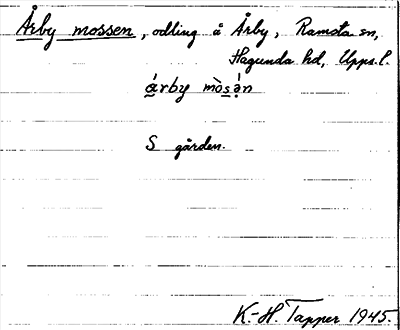 Årby mossen, odling å Årby, Ramsta sn,
Hagunda hd, Upps. l.
árby mòsa̤n
S gården.
K.-H. Tapper 1945.